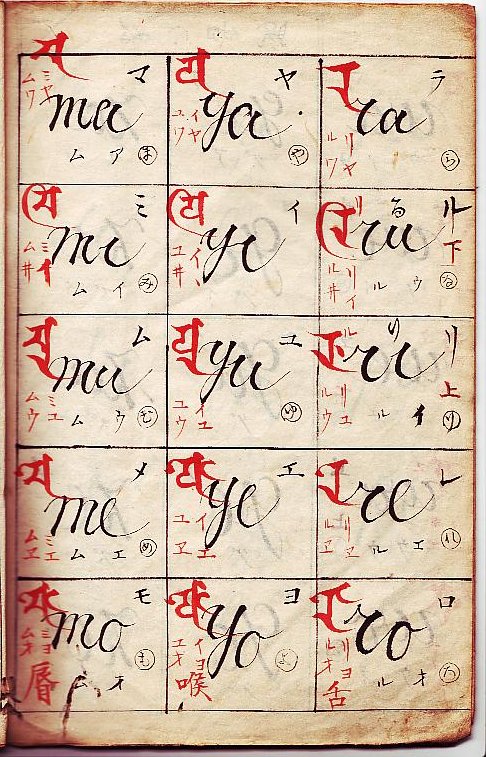 マ
ma
ミヤ
ムワ
ムア ま
ヤ
ya
イヤ
ユワ
や
ラ
ra
リヤ
ルワ
ら
ミ
mi
ミイ
ムヰ
ムイ み
イ
yi
イ丶
ユヰ
ル下
る
ru
リイ
ルヰ
ルウ る
ム
mu
ミユ
ムウ
ムウ む
ユ
yu
イユ
ユウ
ゆ
リ上
り
ri
リユ
ルウ
ルイ り
メ
me
ミエ
ムヱ
ムエ め
エ
ye
イエ
ユヱ
レ
re
リエ
ルヱ
ルエ れ
モ
mo
ミヨ
ムオ
ムオ も
唇
ヨ
yo
イヨ
ユオ
よ
喉
ロ
ro
リヨ
ルオ
ルオ ろ
舌